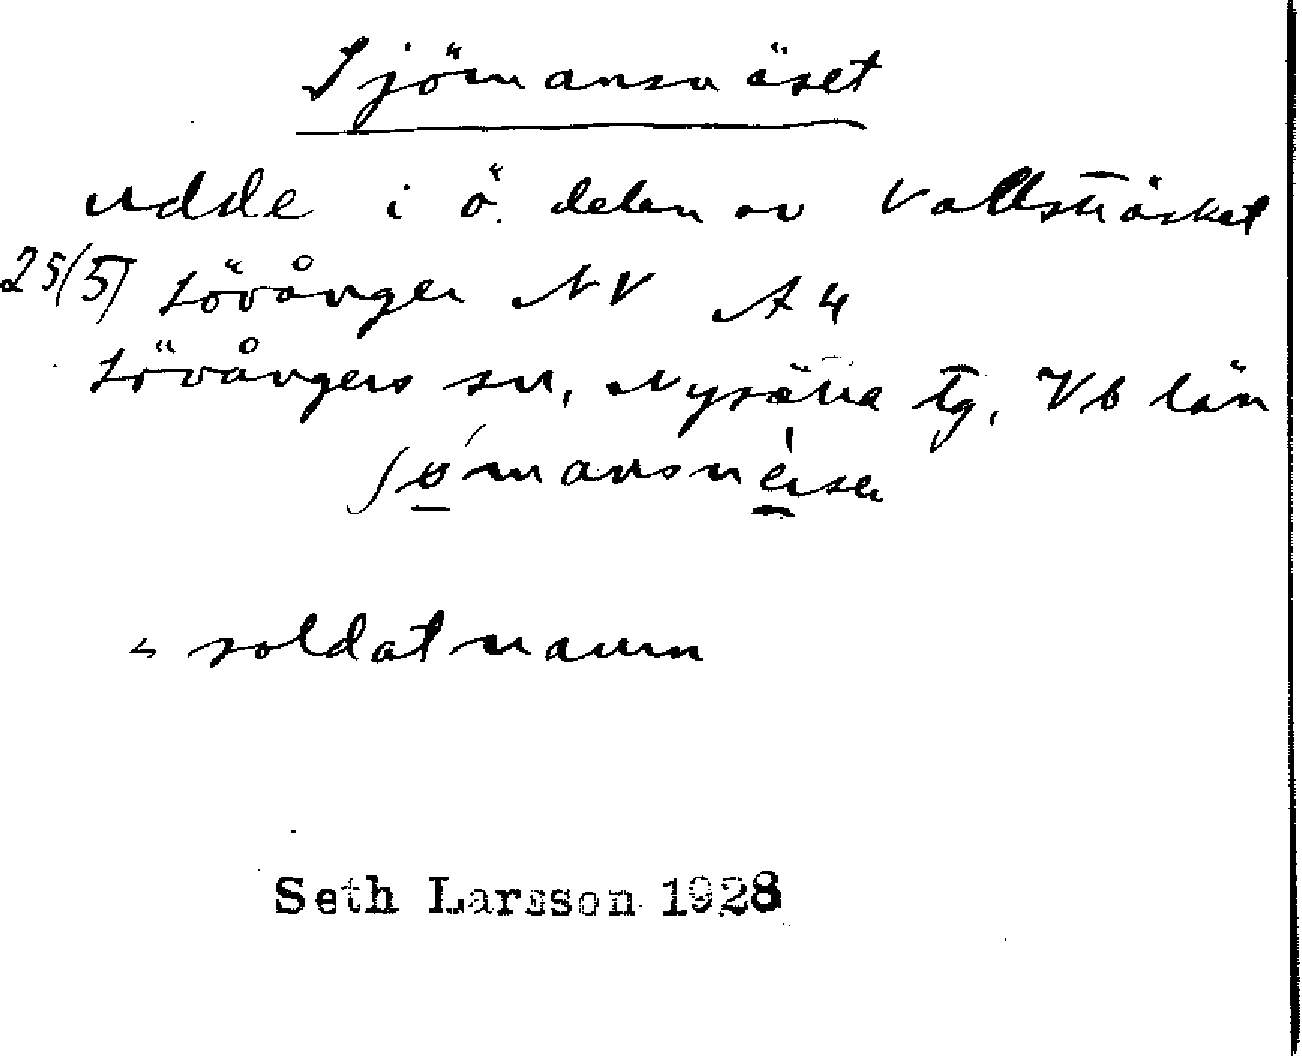 Sjömansnäset
udde i ö. delen av Vallsträsket
25(5) Lövånger NV A4
Lövångers sn, Nysätra tg, Vb län
ʃø´mansnä̀isen
< soldatnamn
Seth Larsson 1928